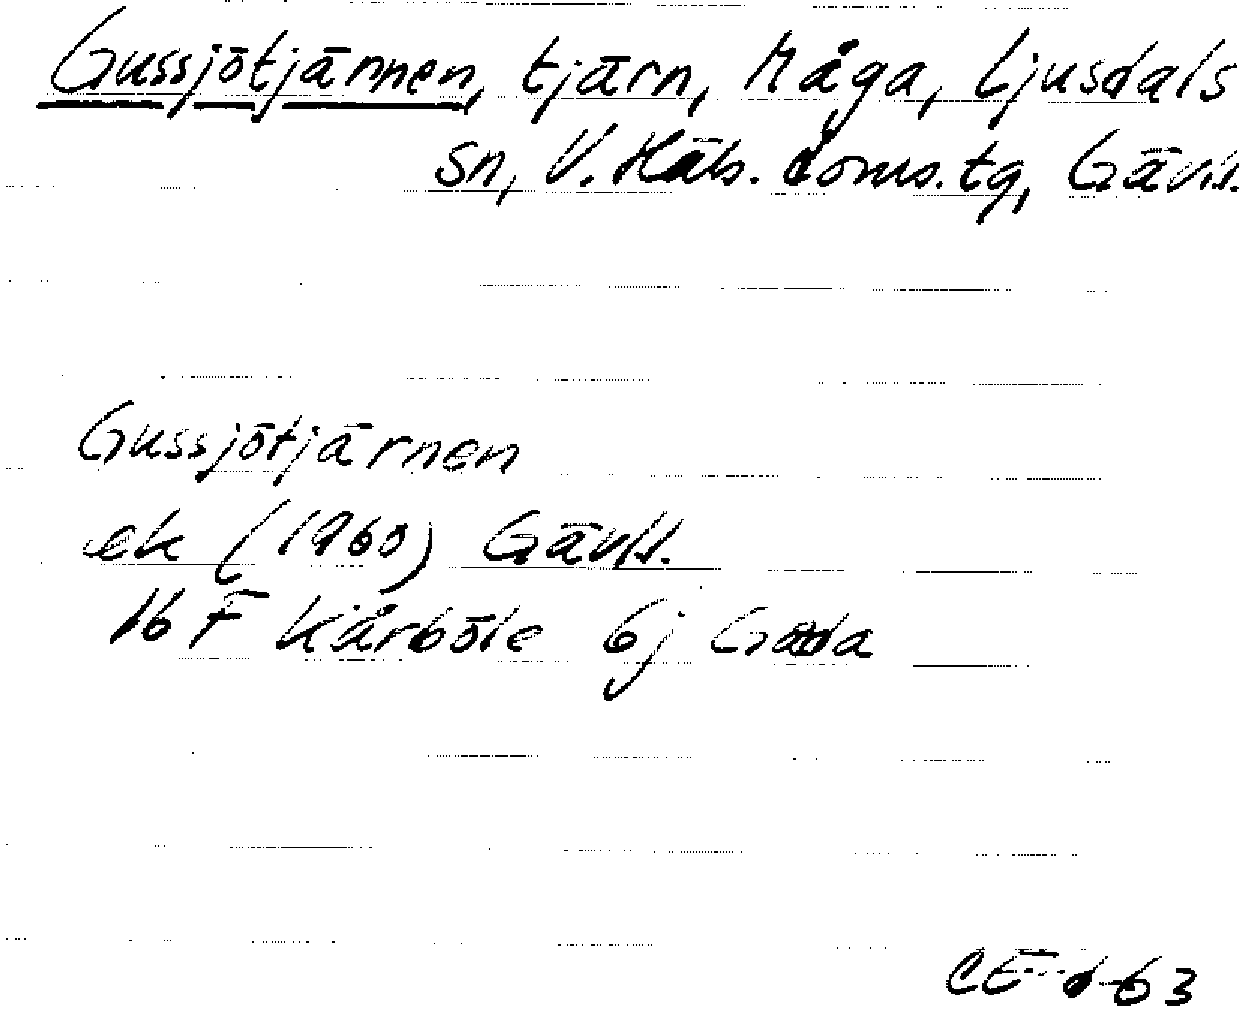 Gussjötjärnen, tjärn, Måga, Ljusdals
sn, V. Häls. doms.tg, Gävll.
Gussjötjärnen
ek (1960) Gävll.
16 F Kårböle 6j
CE 63